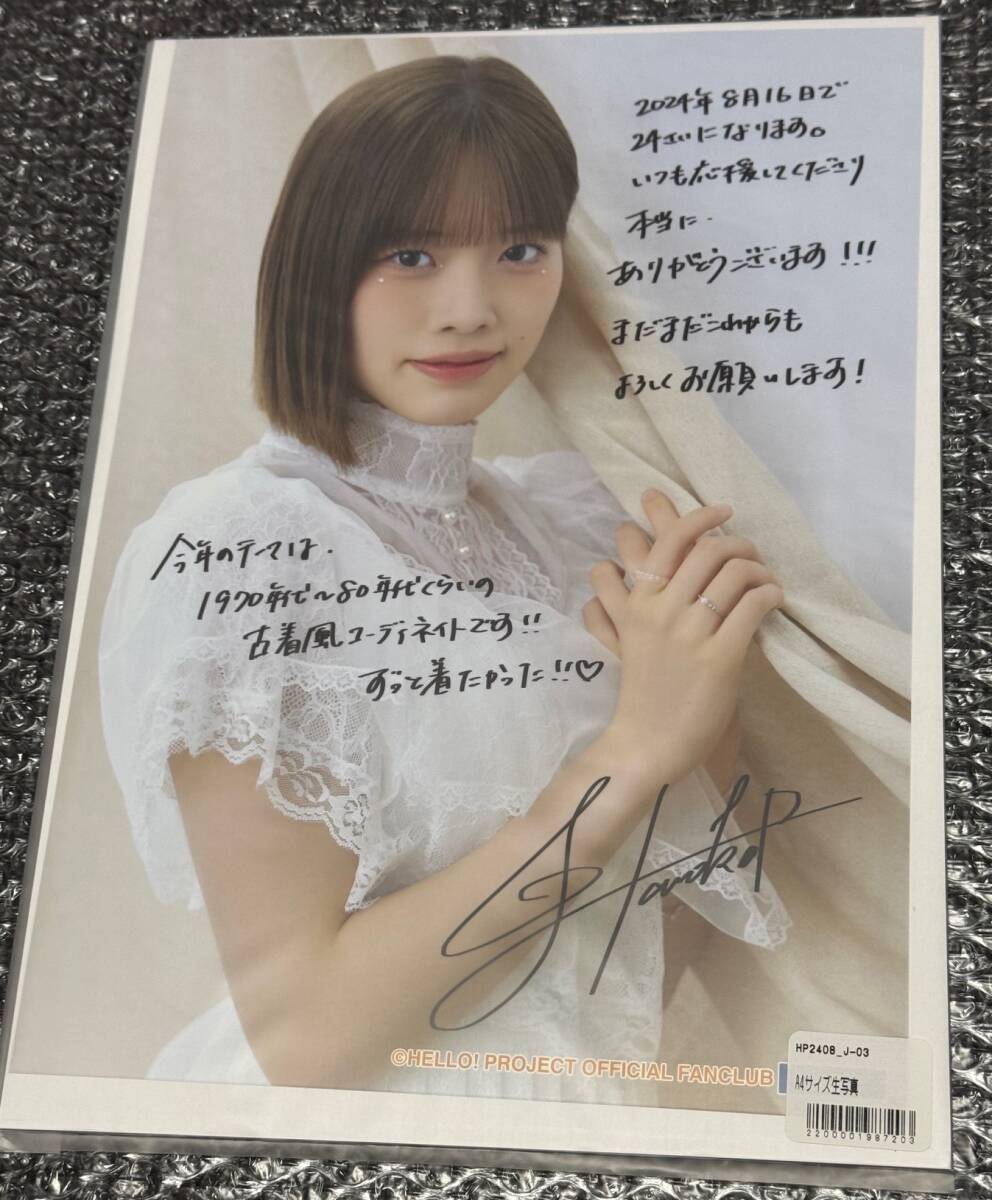 2024年8月16日で
24さいになります。
いつも応援してくださり
本当に、
ありがとうございます!!!
まだまだこれからも
よろしくお願いします!
今年のテーマは、
1970年代〜80年代くらいの
古着風コーディネイトです!!
ずっと着たかった!!♡
©HELLO! PROJECT OFFICIAL FANCLUB
HP2408_J-03
A4サイズ生写真
2200001987203